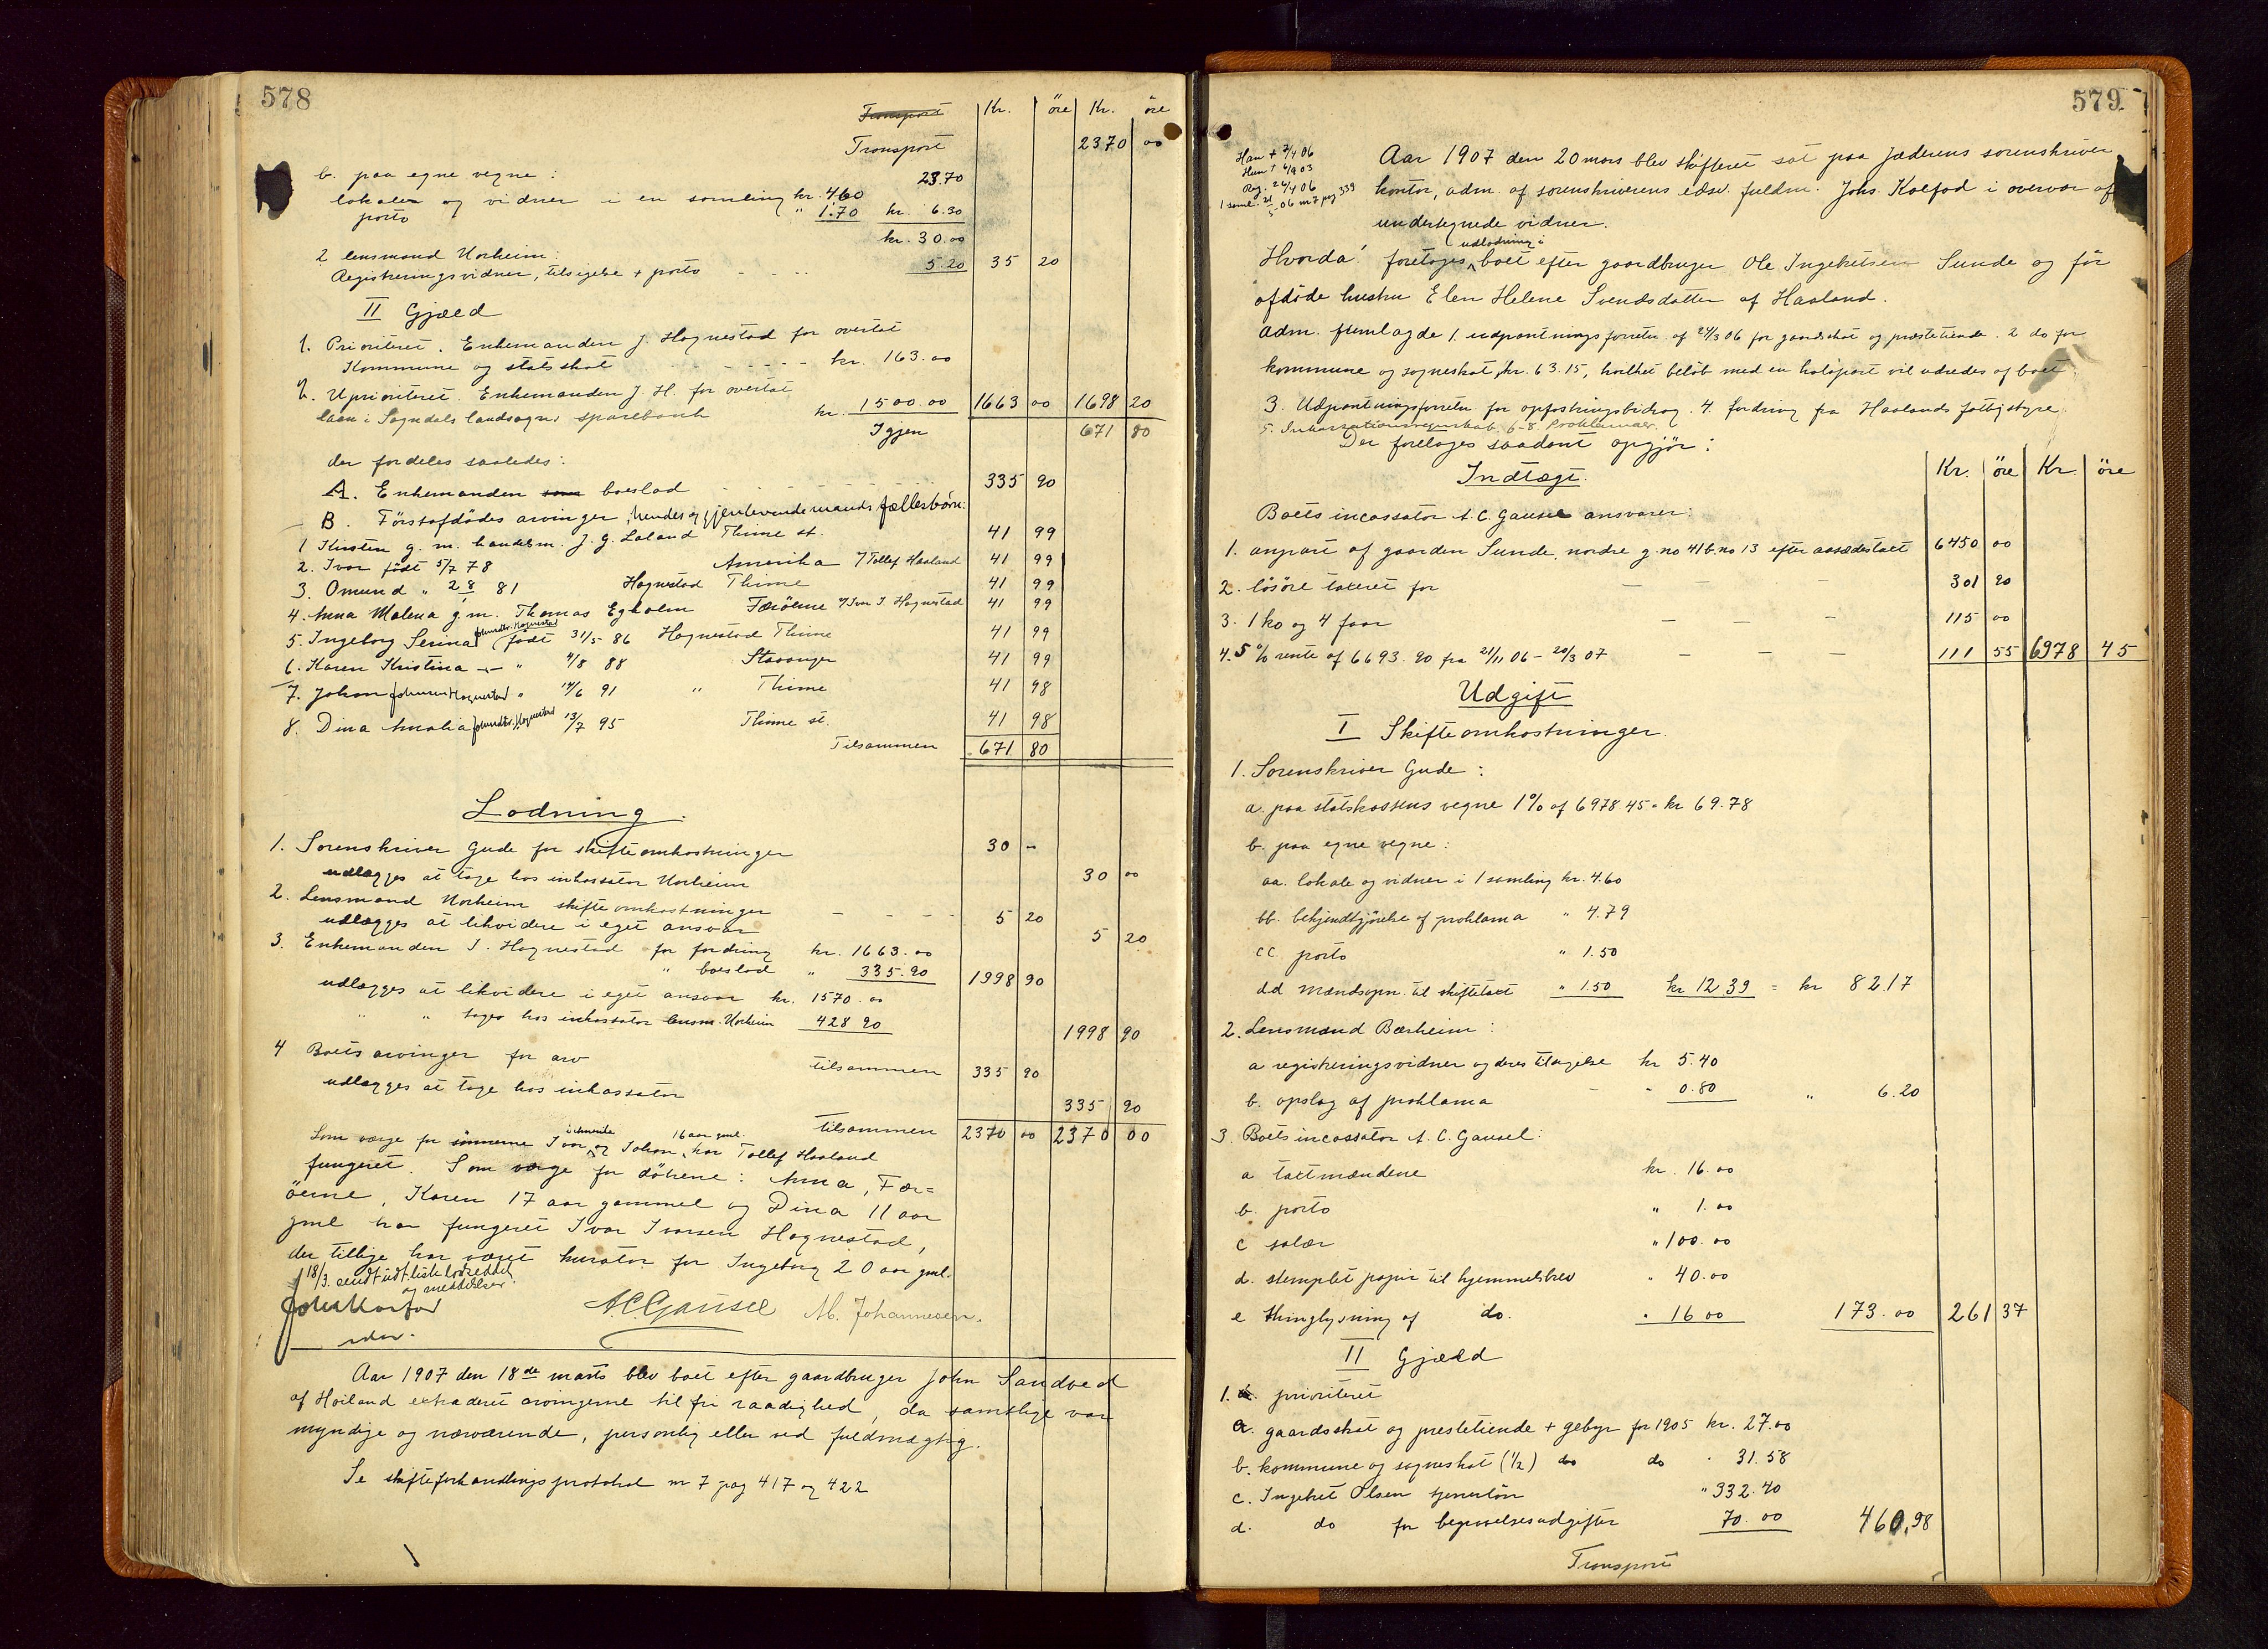 578
Transport Kr. öre Kr. öre
Transport 2370 00
b. paa egne vegne: 23.70
lokaler og vidner i en samling kr. 4.60
porto " 1.70 kr. 6.30
kr. 30.00
2 lensmand Norheim:
Registreringsvidner, tilsigelse + porto 5.20 35 20
II Gjæld
1. Prioriteret. Enkemanden J. Hognestad for overtat
Kommune og statsskat kr. 163.00
2. Uprioriteret. Enkemanden J. H. for overtat
laan i Sogndals landsogns sparebank kr. 1500.00 1663 00 1698 20
Igjen 671 80
der fordeles saaledes:
A. Enkemanden som boeslod 335 90
B. Förstafdödes arvinger, hendes og gjenlevende mands fællesbörn:
1 Kirsten g. m. handelsm. J. G. Laland Thime st. 41 99
2. Ivar født 5/7 78 Amerika / Tollef Haaland 41 99
3. Omund " 2/8 81 Hognestad Thime 41 99
4. Anna Malena g. m. Thomas Egholm Færöerne / Ivar I. Hognestad 41 99
5. Ingeborg Serina Johnsdtr. Hognestad født 31/5 86 Hognestad Thime 41 99
6. Karen Kristina — " 4/8 88 Stavanger 41 99
7. Johan Johnsen Hognestad " 14/6 91 " Thime 41 98
8. Dina Amalia Johnsdtr. Hognestad 13/7 95 Thime st. 41 98
Tilsammen 671 80
Lodning.
1. Sorenskriver Gude for skifteomkostninger 30 -
udlægges at tage hos inkassator Norheim 30 00
2. Lensmand Norheim skifteomkostninger 5 20
udlægges at likvidere i eget ansvar 5 20
3. Enkemanden J. Hognestad for fordring kr. 1663.00
" boeslod " 335.90 1998 90
udlægges at likvidere i eget ansvar kr. 1570.00
" " tages hos inkassator lensm. Norheim 428 90 1998 90
4 Boets arvinger for arv tilsammen 335 90
udlægges at tage hos inkassator 335 90
tilsammen 2370 00 2370 00
Som værge for sönnerne Ivar og Johan, 16 aar gml. har Tollef Haaland
fungeret. Som værge for döttrene: Anna, Fær=
öerne, Karen 17 aar gammel og Dina 11 aar
gml har fungeret Ivar Ivarsen Hognestad,
der tillige har været kurator for Ingeborg 20 aar gml.
18/3. sendt udt. liste lodseddel
og meddelelser.
A.C. Gausel M. Johannesen.
Aar 1907 den 18de marts blev boet efter gaardbruger John Sandved
af Höiland extraderet arvingerne til fri raadighed, da samtlige var
myndige og nærværende, personlig eller ved fuldmægtig.
Se skifteforhandlingsprotokol nr 7 pag 417 og 422
579
Han + 7/4 06
Hun + 6/9 03
Reg. 26/4 06
1 saml. 21/5 06 nr 7 pag 339
Aar 1907 den 20 mars blev skifteret sat paa Jæderens sorenskriver
kontor, adm. af sorenskriverens edsv. fuldm. Johs. Kolfod i overvær af
undertegnede vidner.
Hvorda: foretoges udlodning i boet efter gaardbruger Ole Ingebretsen Sunde og før
afdöde hustru Elen Helene Svendsdatter af Haaland.
Adm. fremlagde 1. udpantningsforretn. af 24/3 06 for gaardskat og præstetiende. 2 do for
kommune og sogneskat, kr. 63.15, hvilket beløb med en halvpart vil udredes af boet
3. Udpantningsforretn. for opfostringsbidrag. 4. fordring fra Haalands fattigstyre.
5. Inkassationsregnskab 6-8 Proklamaer.
Der foretoges saadant opgjör:
Indtægt. Kr. öre Kr öre
Boets incassator A. C. Gausel ansvarer:
1. anpart af gaarden Sunde, nordre g. no 41 b. no 13 efter aasædestaxt 6450 00
2. lösöre taxeret for 301 90
3. 1 ko og 4 faar 115 00
4. 5 % rente af 6693.90 fra 21/11 06 - 20/3 07 111 55 6978 45
Udgift
I Skifteomkostninger.
1. Sorenskriver Gude:
a. paa statskassens vegne 1% af 6978.45 = kr 69.78
b. paa egne vegne:
aa. lokale og vidner i 1 samling kr. 4.60
bb. bekjendtgjörelse af proklama " 4.79
cc. porto " 1.50
dd mændsopn. til skiftetaxt " 1.50 kr 12 39 = kr 82.17
2. Lensmand Bærheim:
a registreringsvidner og deres tilsigelse kr 5.40
b. opslag af proklama - " 0.80 " 6.20
3. Boets incassator A. C. Gausel:
a taxtmændene kr. 16.00
b. porto " 1.00
c salær " 100.00
d. stemplet papir til hjemmelsbrev " 40.00
e thinglysning af do. " 16 00 173.00 261 37
II Gjæld
1. prioriteret
a. gaardsskat og prestetiende + gebyr for 1905 kr. 27.00
b. kommune og sogneskat (1/2) do do " 31.58
c. Ingebret Olsen tjenerlön " 332.40
d. do for begravelsesudgifter 70.00 460,98
Transport